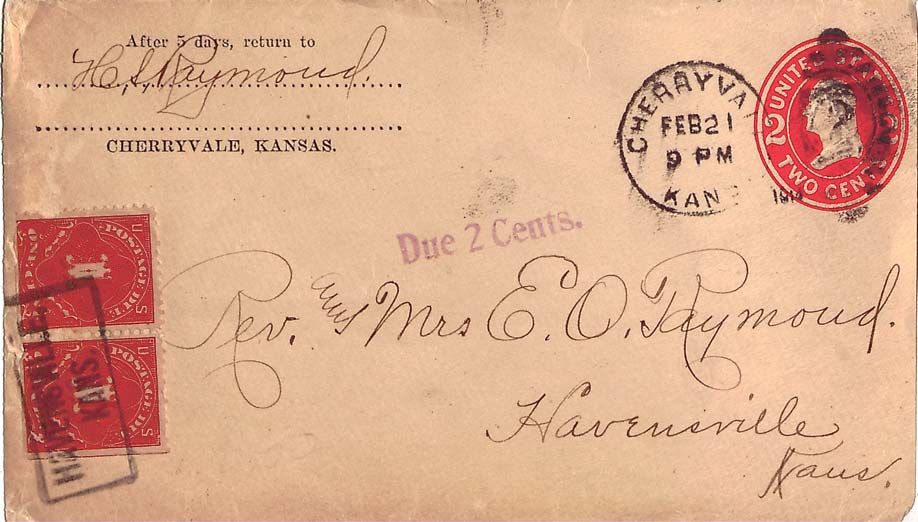 After 5 days, return to
H. S. Raymond.
CHERRYVALE, KANSAS.
CHERRYVA
FEB 21
9 PM
KANS
UNITED STATES
2
TWO CENTS
Due 2 Cents.
POSTAGE DUE
U S
1
POSTAGE DUE
U S
1
HAVENSVILLE,
KANS.
Rev. and Mrs E. O. Raymond.
Havensville
Kans.